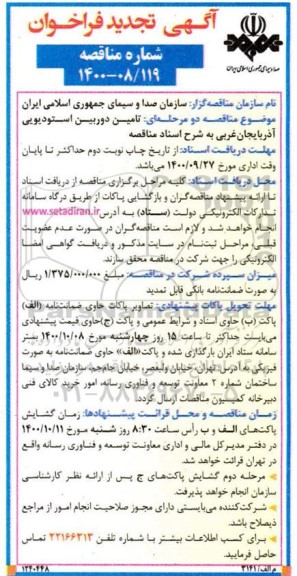 آگهی تجدید فراخوان
شماره مناقصه
۱۴۰۰-۰۸/۱۱۹
صدا و سیمای جمهوری اسلامی ایران
نام سازمان مناقصه‌گزار: سازمان صدا و سیمای جمهوری اسلامی ایران
موضوع مناقصه دو مرحله‌ای: تامین دوربین استودیویی
آذربایجان‌غربی به شرح اسناد مناقصه
مهلت دریافت اسناد: از تاریخ چاپ نوبت دوم حداکثر تا پایان
وقت اداری مورخ ۱۴۰۰/۰۹/۲۷ می‌باشد.
محل دریافت اسناد: کلیه مراحل برگزاری مناقصه از دریافت اسناد
تا ارائه پیشنهاد مناقصه‌گران و بازگشایی پاکات از طریق درگاه سامانه
تدارکات الکترونیکی دولت (ستاد) به آدرس www.setadiran.ir
انجام خواهد شد و لازم است مناقصه‌گران در صورت عدم عضویت
قبلی، مراحل ثبت‌نام در سایت مذکور و دریافت گواهی امضا
الکترونیکی را جهت شرکت در مناقصه محقق سازند.
میزان سپرده شرکت در مناقصه: مبلغ ۱/۳۷۵/۰۰۰/۰۰۰ ریال
به صورت ضمانت‌نامه بانکی قابل تمدید
مهلت تحویل پاکات پیشنهادی: تصاویر پاکات حاوی ضمانت‌نامه (الف)
پاکت (ب) حاوی اسناد و شرایط عمومی و پاکت (ج) حاوی قیمت پیشنهادی
می‌بایست حداکثر تا ساعت ۱۵ روز چهارشنبه مورخ ۱۴۰۰/۱۰/۰۸ بستر
سامانه ستاد ایران بارگذاری شده و پاکت «الف» حاوی ضمانت‌نامه به صورت
فیزیکی به آدرس تهران، خیابان ولیعصر، خیابان جام‌جم، سازمان صدا و سیما
ساختمان شماره ۲ معاونت توسعه و فناوری رسانه، امور خرید کالای فنی
دبیرخانه کمیسیون مناقصات ارسال گردد.
زمان مناقصه و محل قرائت پیشنهادها: زمان گشایش
پاکت‌های الف و ب رأس ساعت ۸:۳۰ روز شنبه مورخ ۱۴۰۰/۱۰/۱۱
در دفتر مدیرکل مالی و اداری معاونت توسعه و فناوری رسانه واقع
در تهران قرائت خواهد شد.
مرحله دوم گشایش پاکت‌های ج پس از ارائه نظر کارشناسی
سازمان انجام خواهد پذیرفت.
شرکت‌کننده می‌بایستی دارای مجوز صلاحیت انجام امور از مراجع
ذیصلاح باشد.
برای کسب اطلاعات بیشتر با شماره تلفن ۲۲۱۶۶۳۱۳ تماس
حاصل فرمایید.
م الف/۳۱۴۱
۱۲۴۰۴۴۸